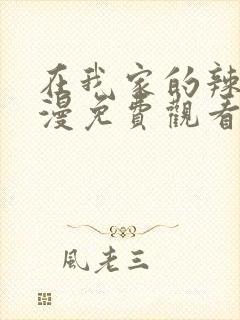 在我家的辣
漫免費觀看
風老三